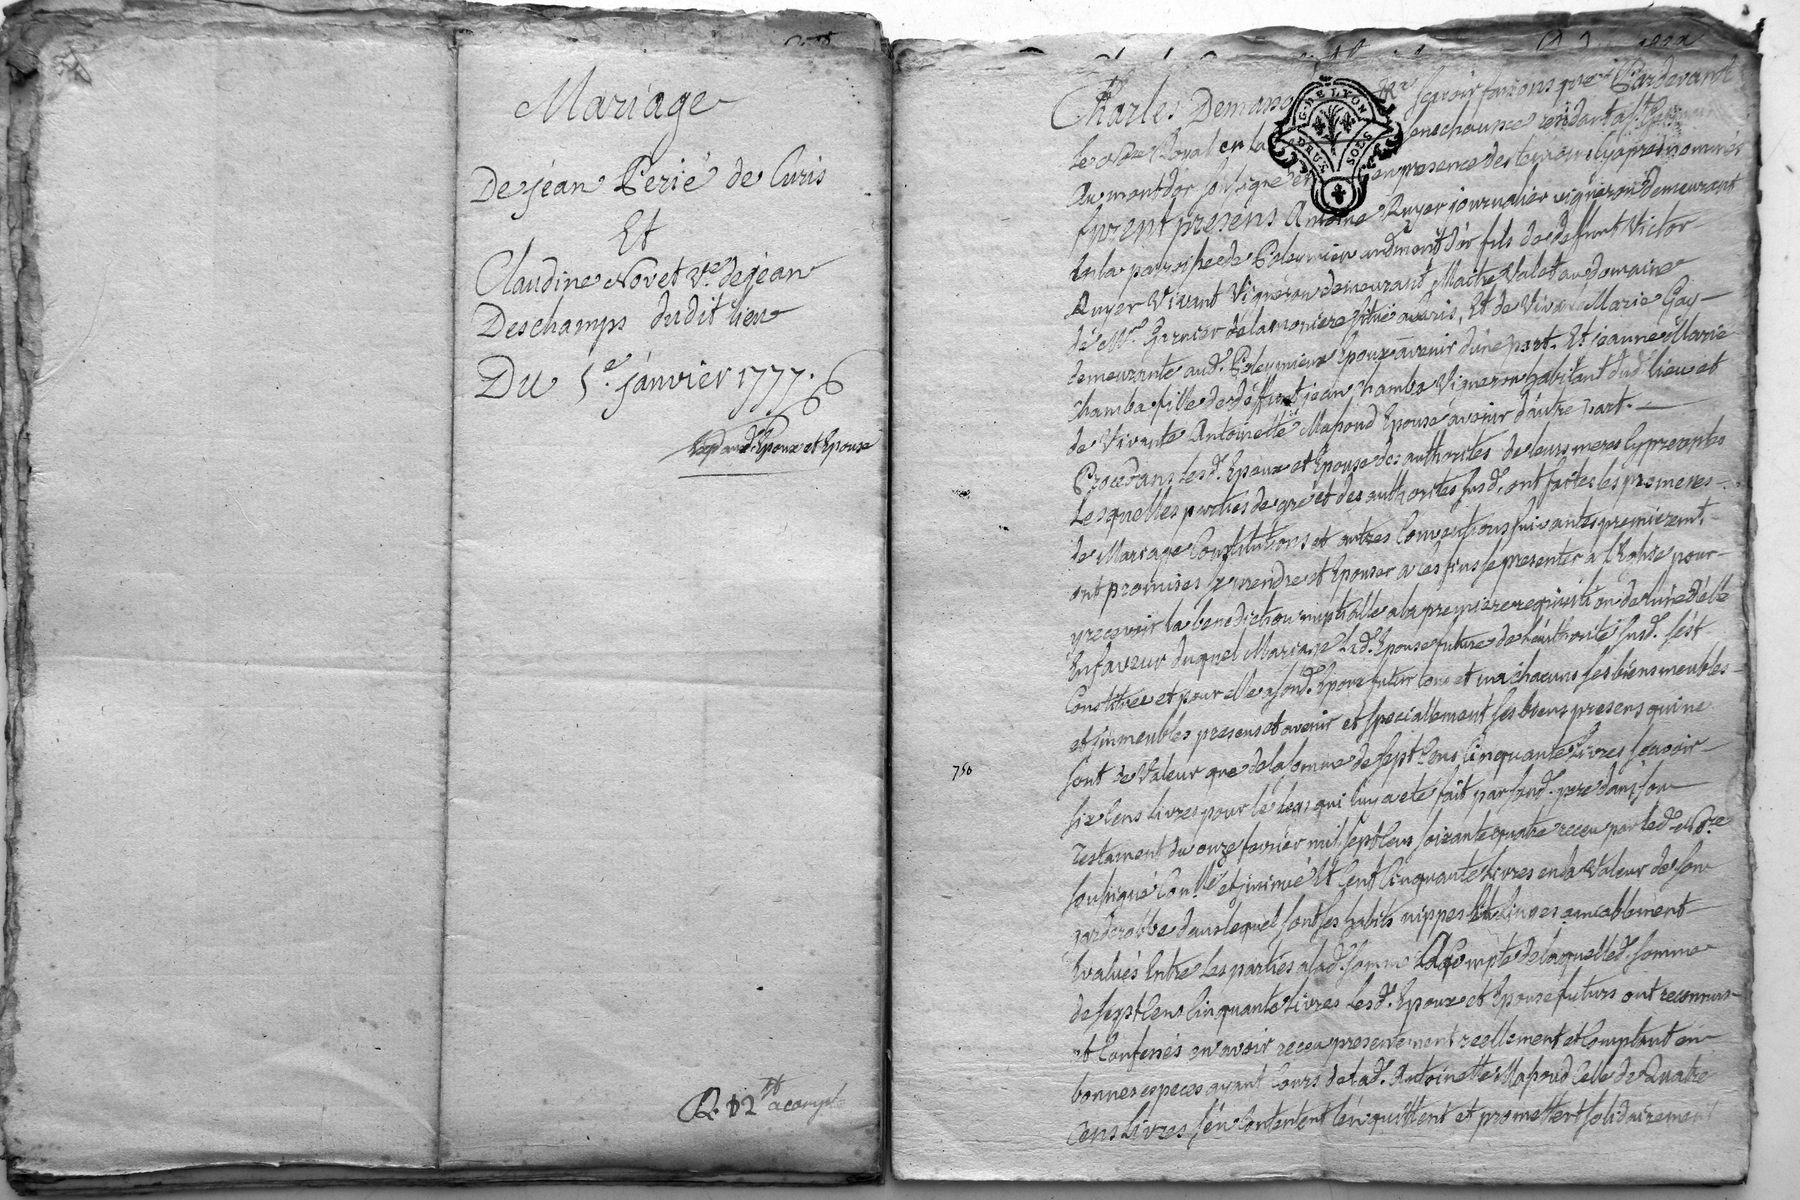 Mariage
De jéan Perié de Curis
Et
Claudine Novet Ve. de jéan
Deschamps dudit lieu
Du 5e. jánvier 1777.
Exp aud. Epoux et Epouse
R. 12 tt acompte
Charles Demaso scavoir faisons que Pardevant
le Nre Royal en la senechaussee residant a St Germain
Au montdor soussigné et en presence des temoins cy apres nommés
furent presens Antoine Ruyer journalier vigneron demeurant
En la parroisse de Poleymieu audmont d'or fils de deffunt Victor
Ruyer Vivant Vigneron demeurant Maitre Valet au domaine
de Mr. Garnier de la moniere situé a Curis, Et de Vivante Marie Gay
demeurante aud. Poleymieux Epoux avenir d'une part. Et jeanne Marie
Chamba fille de deffunt jean Chamba Vigneron habitant dud. lieu et
de Vivante Antoinette Mapoud Epouse avenir d'autre part.
Procedans lesd. Epoux et Epouse des authorités de leurs meres cy presentes
Lesquelles parties de gré et des authorités susd. ont faites les promesses
de Mariage Constitutions et autres Conventions suivantes premieremt.
ont promises se prendre et Epouser a ces fins se presenter a l'Eglise pour
y recevoir la benediction nuptialle a la premiere requisition de l'une d'elle
En faveur duquel Mariage Lad. Epouse future de l'authorité susd. s'est
Constituée et pour elle a sond. Epoux futur tous et un chacuns ses biens meubles
et immeubles presens et avenir et specialement ses biens presens qui ne
sont de Valeur que de la somme de sept Cens Cinquante Livres scavoir
750
six Cens Livres pour le legs qui luy a eté fait par sond. pere dans son
Testament du onze fevrier mil sept Cens soixante quatre receu par led. Nre
soussigné Conllé et insinué Et Cent Cinquante Livres en la Valeur de son
garderobbe dans lequel sont ses habits nippes et Linges amiablement
Evalués Entre Les parties a lad. somme A Compte de laquelle d. somme
de sept Cens Cinquante Livres Lesd. Epoux et Epouse futurs ont reconnus
et Confessés en avoir receu presentement reellement et Comptant en
bonnes especes ayant Cours de lad. Antoinette Mapoud Celle de Quatre
Cens Livres s'en Contentent l'en quittent et promettent solidairement
C. DE LYON
DEUX SOLS